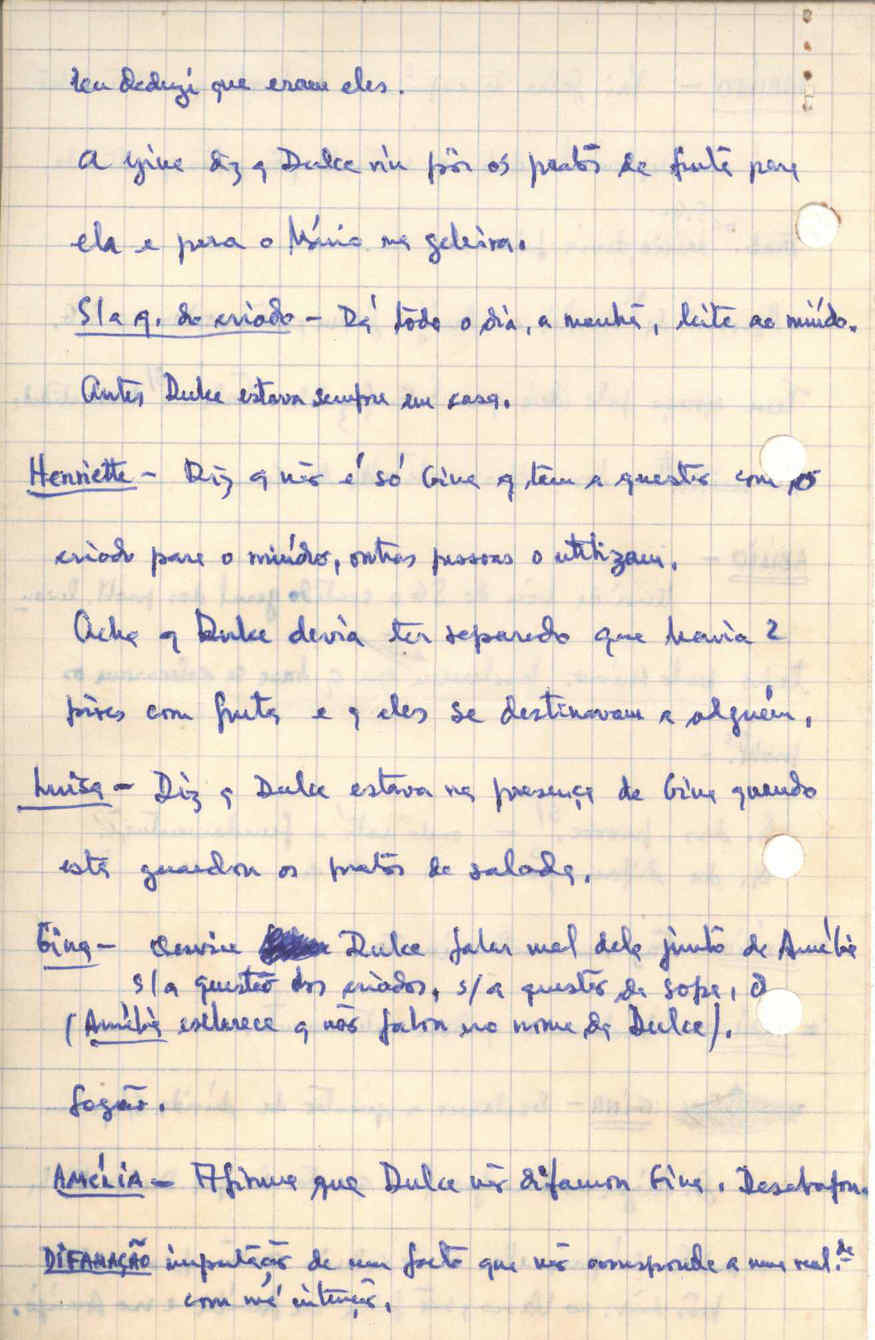 deduzi que eram eles.
A Gina diz q Dulce viu pôr os pratos de fruta para
ela e para o Mário na geleira.
S/ a q. do criado – Dá todo o dia, a manhã, leite ao miúdo.
Antes Dulce estava sempre em casa.
Henriette – Diz q não é só Gina q tem a questão com o
criado para o miúdo, outras pessoas o utilizam.
Acha q Dulce devia ter separado que havia 2
pires com fruta e q eles se destinavam a alguém.
Luísa – Diz q Dulce estava na presença de Gina quando
esta guardou os pratos de salada.
Gina – Dulce falar mal dela junto de Amélia
s/ a questão dos criados, s/ a questão da sopa, o
(Amélia esclarece q não falou no nome da Dulce).
fogão.
AMÉLIA – Afirma que Dulce não difamou Gina. Desabafou.
DIFAMAÇÃO imputação de um facto que não corresponde a uma real.de
com má intenção.